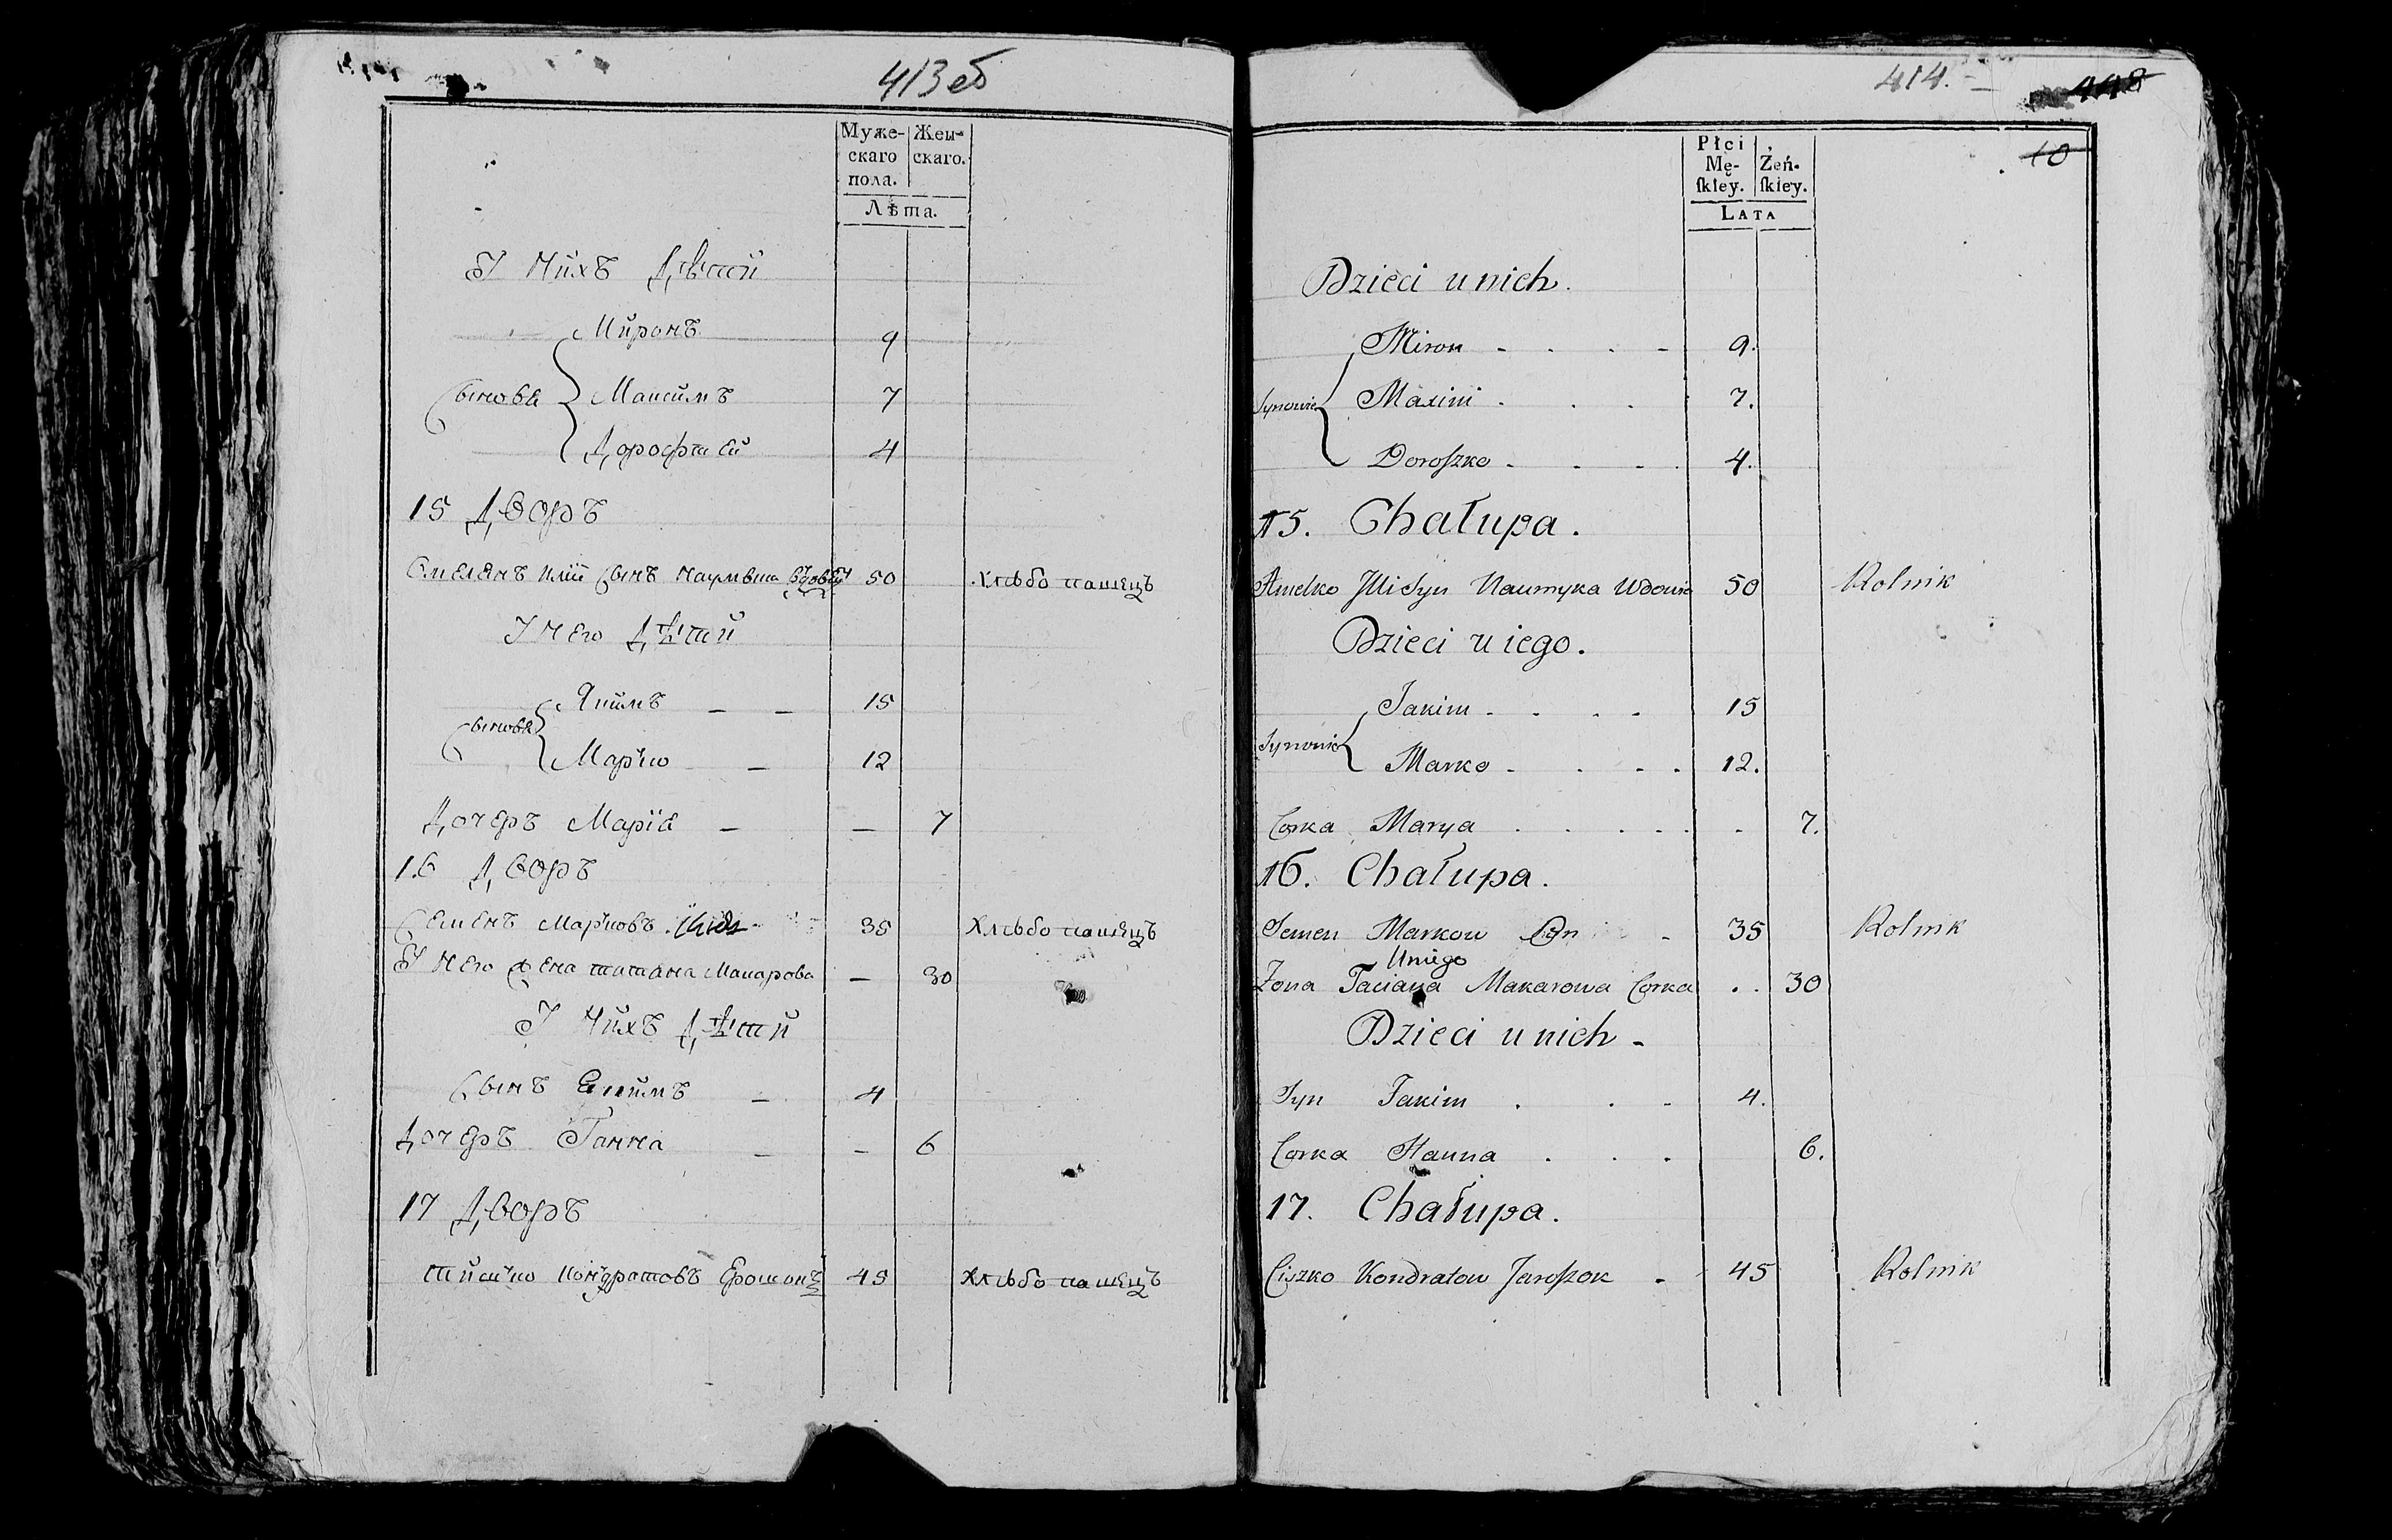 413 об
Муже-
скаго
пола.
Жен-
скаго.
Лѣта.
У Нихъ Дѣтй
Миронъ 9
Сынов
Максимъ 7
Дорофтей 4
15 Дворъ
Омелянъ Иліи Сынъ Наумыка Вдовецъ 50 Хлѣбопашецъ
У Него Дѣтй
Якимъ — — 15
Сынов
Марко — 12
Дочеръ Марія — — 7
16 Дворъ
Семенъ Марковъ 35 Хлѣбопашецъ
У Него Жена татяна Макарова — 30
У Нихъ Дѣтй
Сынъ Екимъ — 4
Дочеръ Ганна — — 6
17 Дворъ
Тишко Кондратовъ Ерошокъ 45 Хлѣбопашецъ
414.
448
10
Płci
Mę-
ſkiey.
Żeń-
ſkiey.
LATA
Dzieci u nich.
Miron - . . - 9.
Synowie
Maxim . . . 7.
Doroſzko - . - 4.
15. Chałupa.
Amelko Illi Syn Naumyka Wdowiec 50 Rolnik
Dzieci u iego.
Jakim - . . . 15
Synowie
Marko - . . . 12.
Corka Marya . . . . . . 7.
16. Chałupa.
Semen Markow - 35 Rolnik
Uniego
Zona Taciana Makarowa Corka . . 30
Dzieci u nich -
Syn Jakim . . - 4.
Corka Hanna . . . 6.
17. Chałupa.
Ciszko Kondratow Jaroſzok - 45 Rolnik